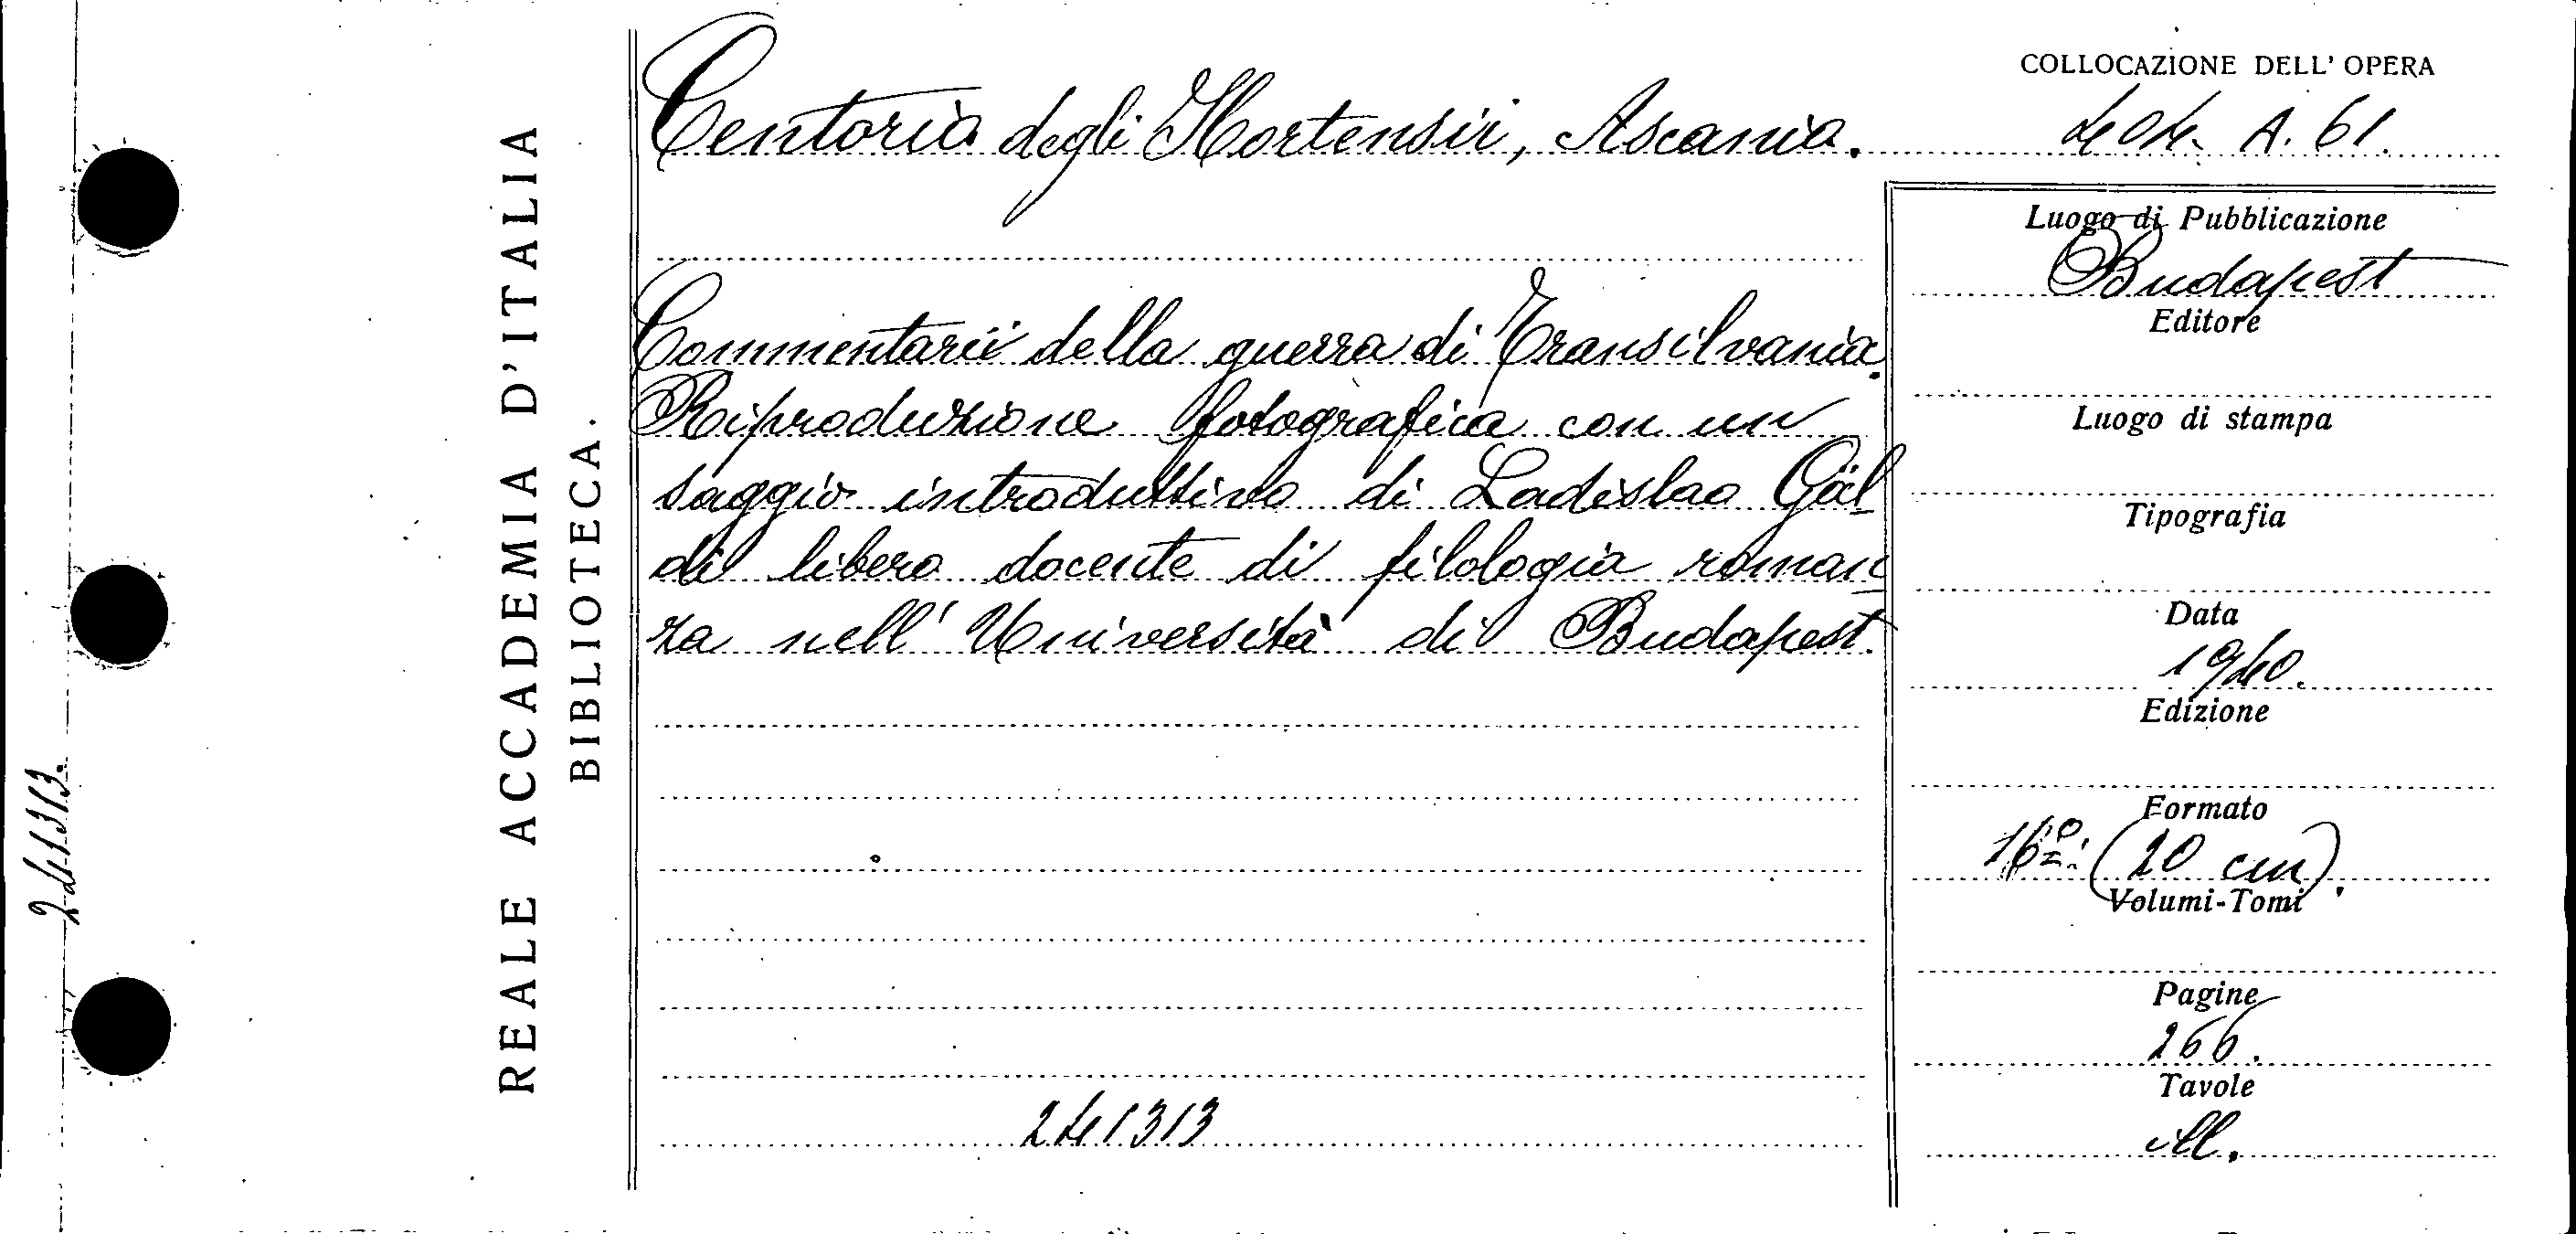 REALE ACCADEMIA D'ITALIA
BIBLIOTECA.
241313.
Centorio degli Hortensii, Ascanio.
Commentarii della guerra di Transilvania.
Riproduzione fotografica con un
saggio introduttivo di Ladislao Gál-
di libero docente di filologia roman-
za nell'Università di Budapest.
241313
COLLOCAZIONE DELL'OPERA
404. A. 61.
Luogo di Pubblicazione
Budapest
Editore
Luogo di stampa
Tipografia
Data
1940.
Edizione
Formato
16º: (20 cm).
Volumi-Tomi
Pagine
266.
Tavole
ill.